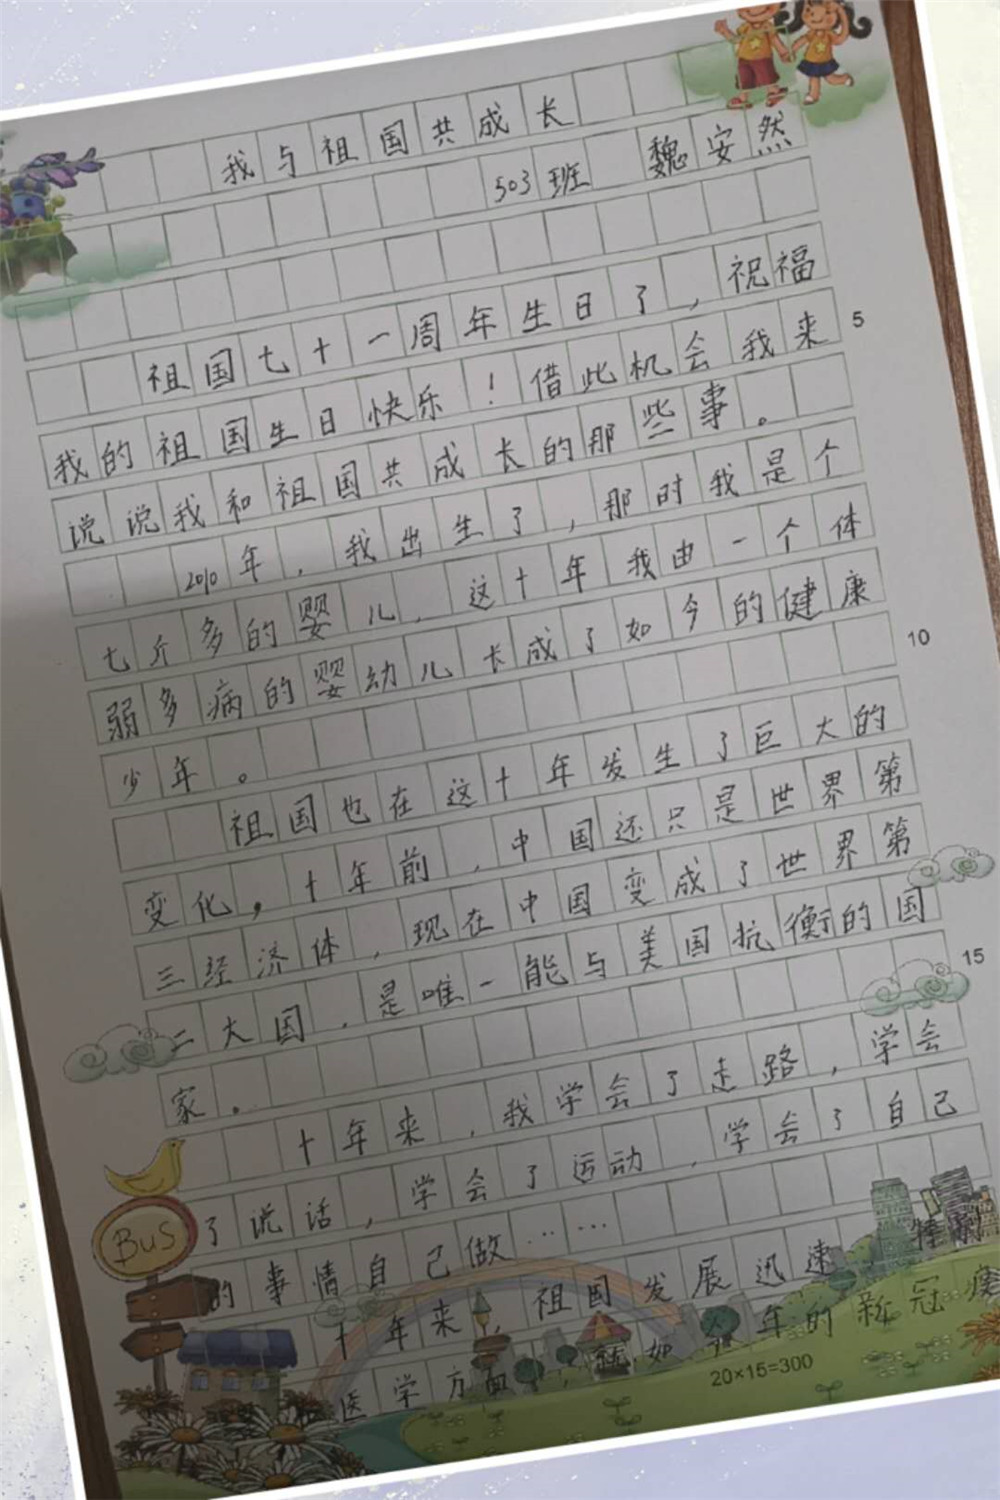 我与祖国共成长
503班 魏安然
祖国七十一周年生日了，祝福
我的祖国生日快乐！借此机会我来
说说我和祖国共成长的那些事。
2010年，我出生了，那时我是个
七斤多的婴儿，这十年我由一个体
弱多病的婴幼儿长成了如今的健康
少年。
祖国也在这十年发生了巨大的
变化，十年前，中国还只是世界第
三经济体，现在中国变成了世界第
二大国，是唯一能与美国抗衡的国
家。
十年来，我学会了走路，学会
了说话，学会了运动，学会了自己
的事情自己做……
十年来，祖国发展迅速，特别
医学方面，就如今年的新冠疫
5
10
15
BUS
20×15=300